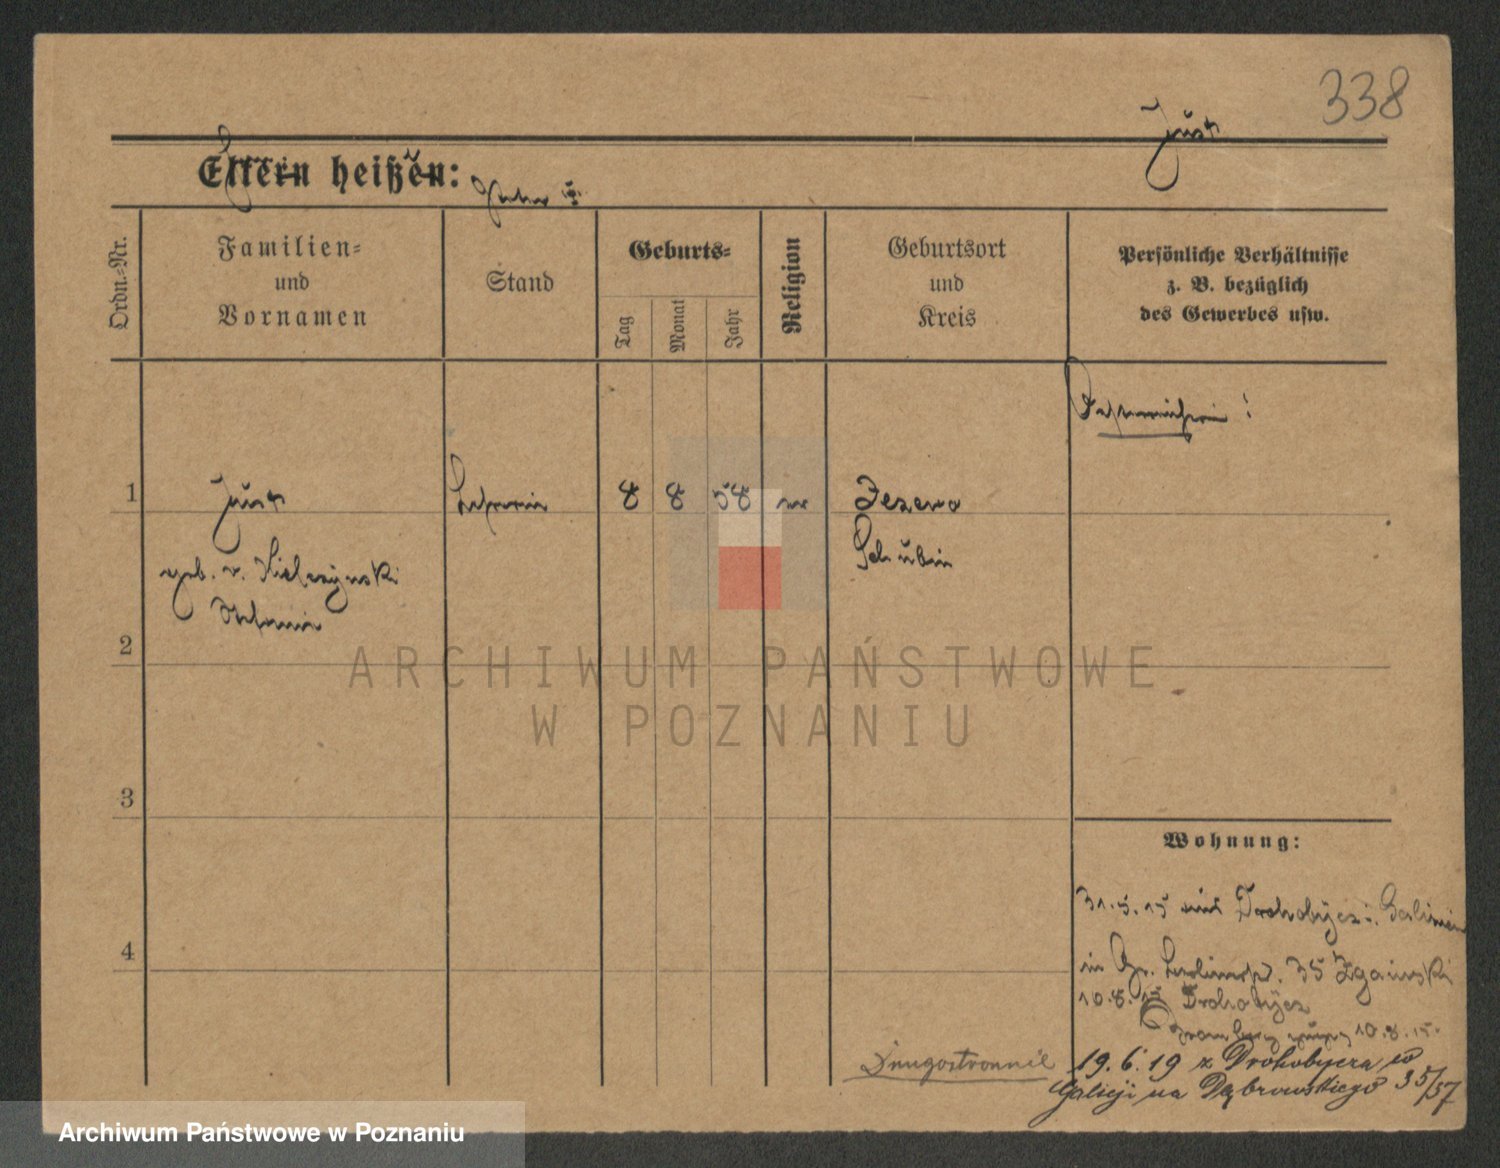 338
Just
Eltern heißen:
Ordn.-Nr.
Familien-
und
Vornamen
Stand
Geburts-
Tag
Monat
Jahr
Religion
Geburtsort
und
Kreis
Persönliche Verhältnisse
z. B. bezüglich
des Gewerbes usw.
Österreicherin!
1
Just
Lehrerin
8
8
58
Jezewo
Schubin
geb. v. Kielczynski
Stefania
2
3
4
Wohnung:
31.5.15 aus Drohobycz i. Galizien
in Gr. Berlinerstr. 35 Zgainski
10.8.15 Drohobycz
10.8.15
19.6.19 z Drohobycza w
Galicji na Dąbrowskiego 35/37
ARCHIWUM PAŃSTWOWE
W POZNANIU
Archiwum Państwowe w Poznaniu